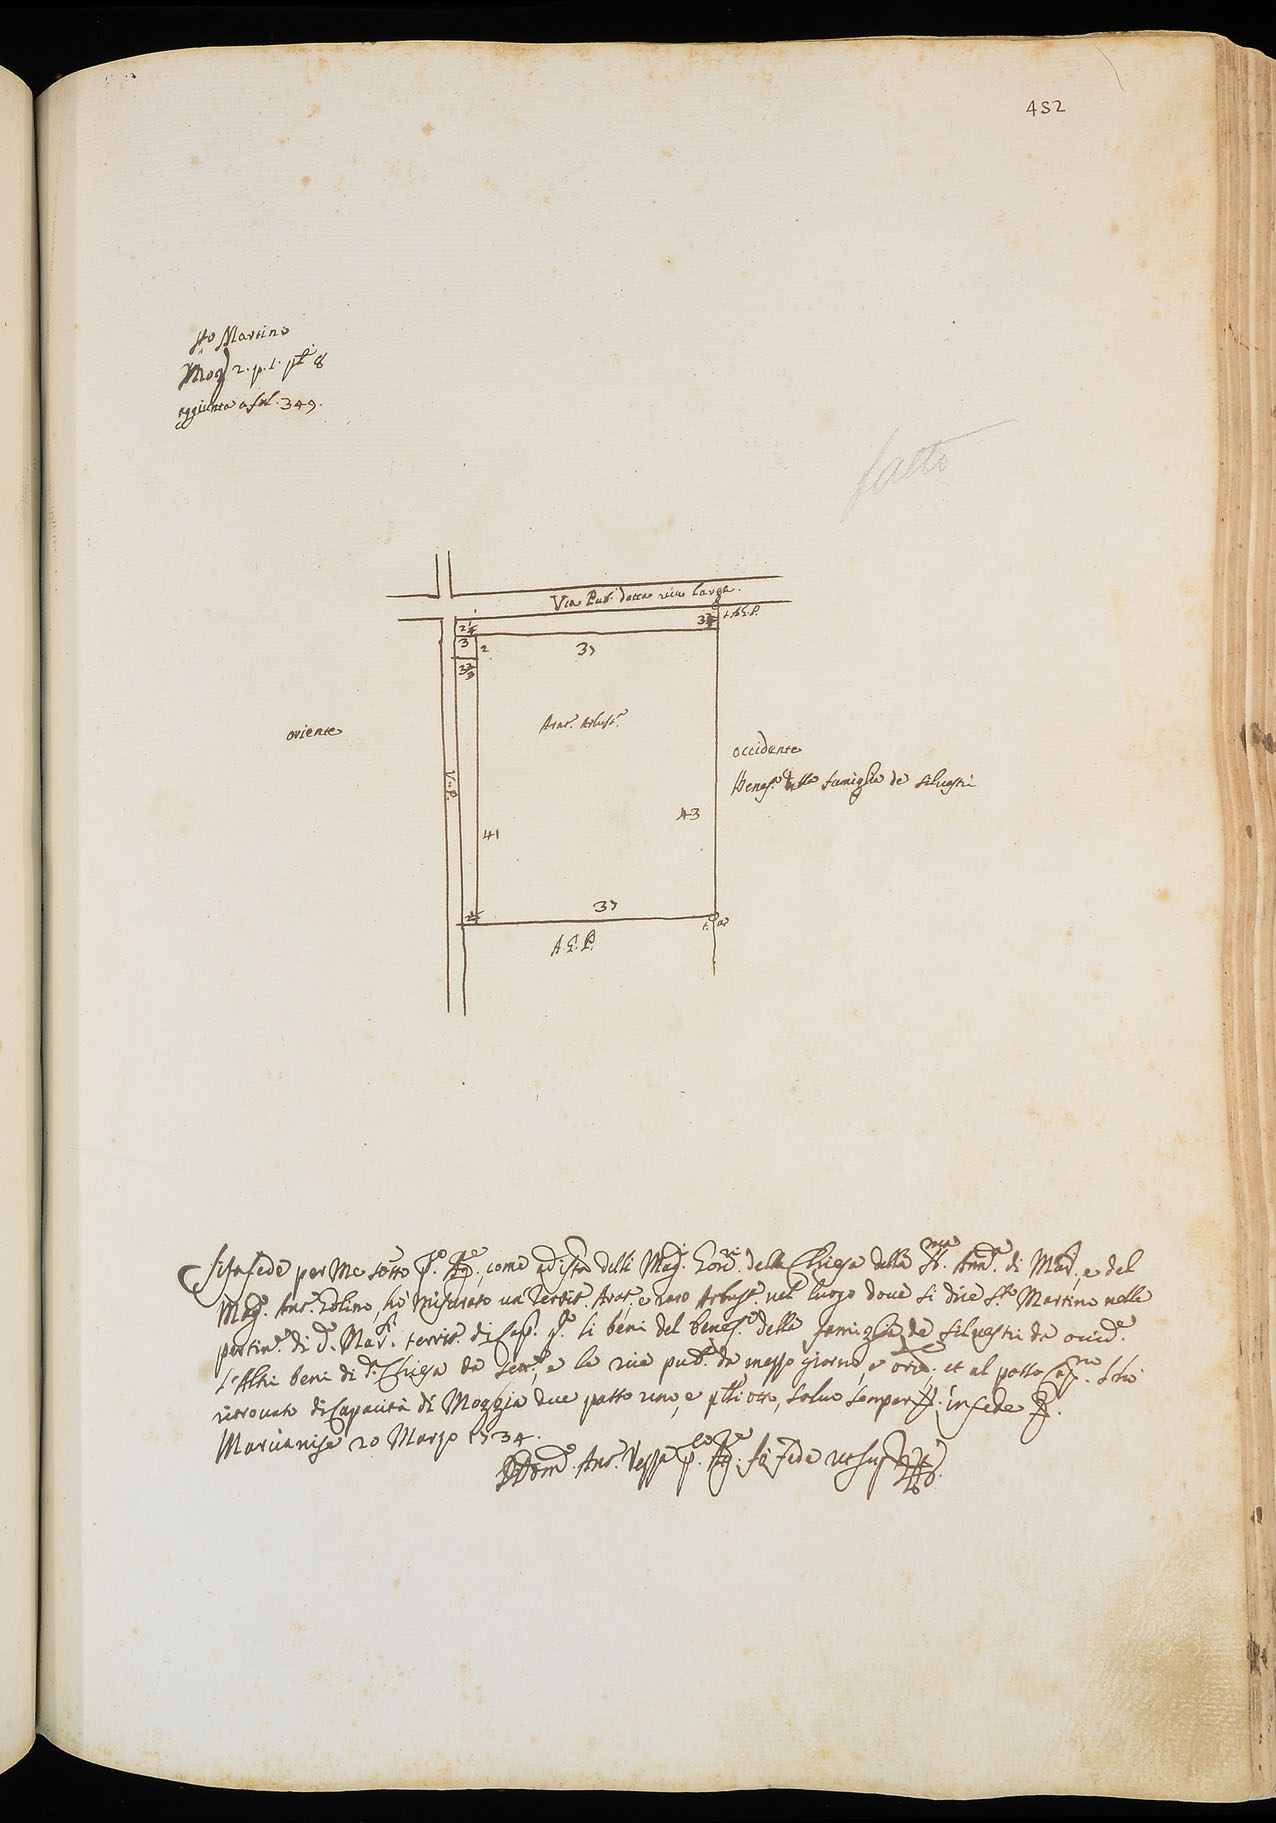 452
Sto Martino
Mog. 2. p. 1. pli 8
aggiunta a fol. 349.
fatto
Via Pub. detta via larga.
2 1/4
3
2
37
3 3/4
A.G.P.
oriente
Arat. Arbust.
occidente
Benef. della famiglia de Silvestri
V. P.
41
43
37
A G. P.
Si fa fede per me sotto p. Ag., come ad ista delli Mag. Econ. della Chiesa della SS. Ann. di Mar. e del
Mag. Ant. hò misurato un territ. Arat. e raro Arbust. nel luogo dove si dice S.to Martino nelle
pertin. di d. Mar. territ. di Cap. li beni del benef. della famiglia de Silvestri da occid.
l'Altri beni di d. Chiesa da sett., e le vie pub. da mezzo giorno, e orie. et al passo Cap. l'hò
ritrovato di Capacità di Moggja due passo uno, e pli otto, salvo semper in fede
Marcianise 20 Marzo 1734.
Dom. Ant. Vessa p. Ag. fa fede ut sup.